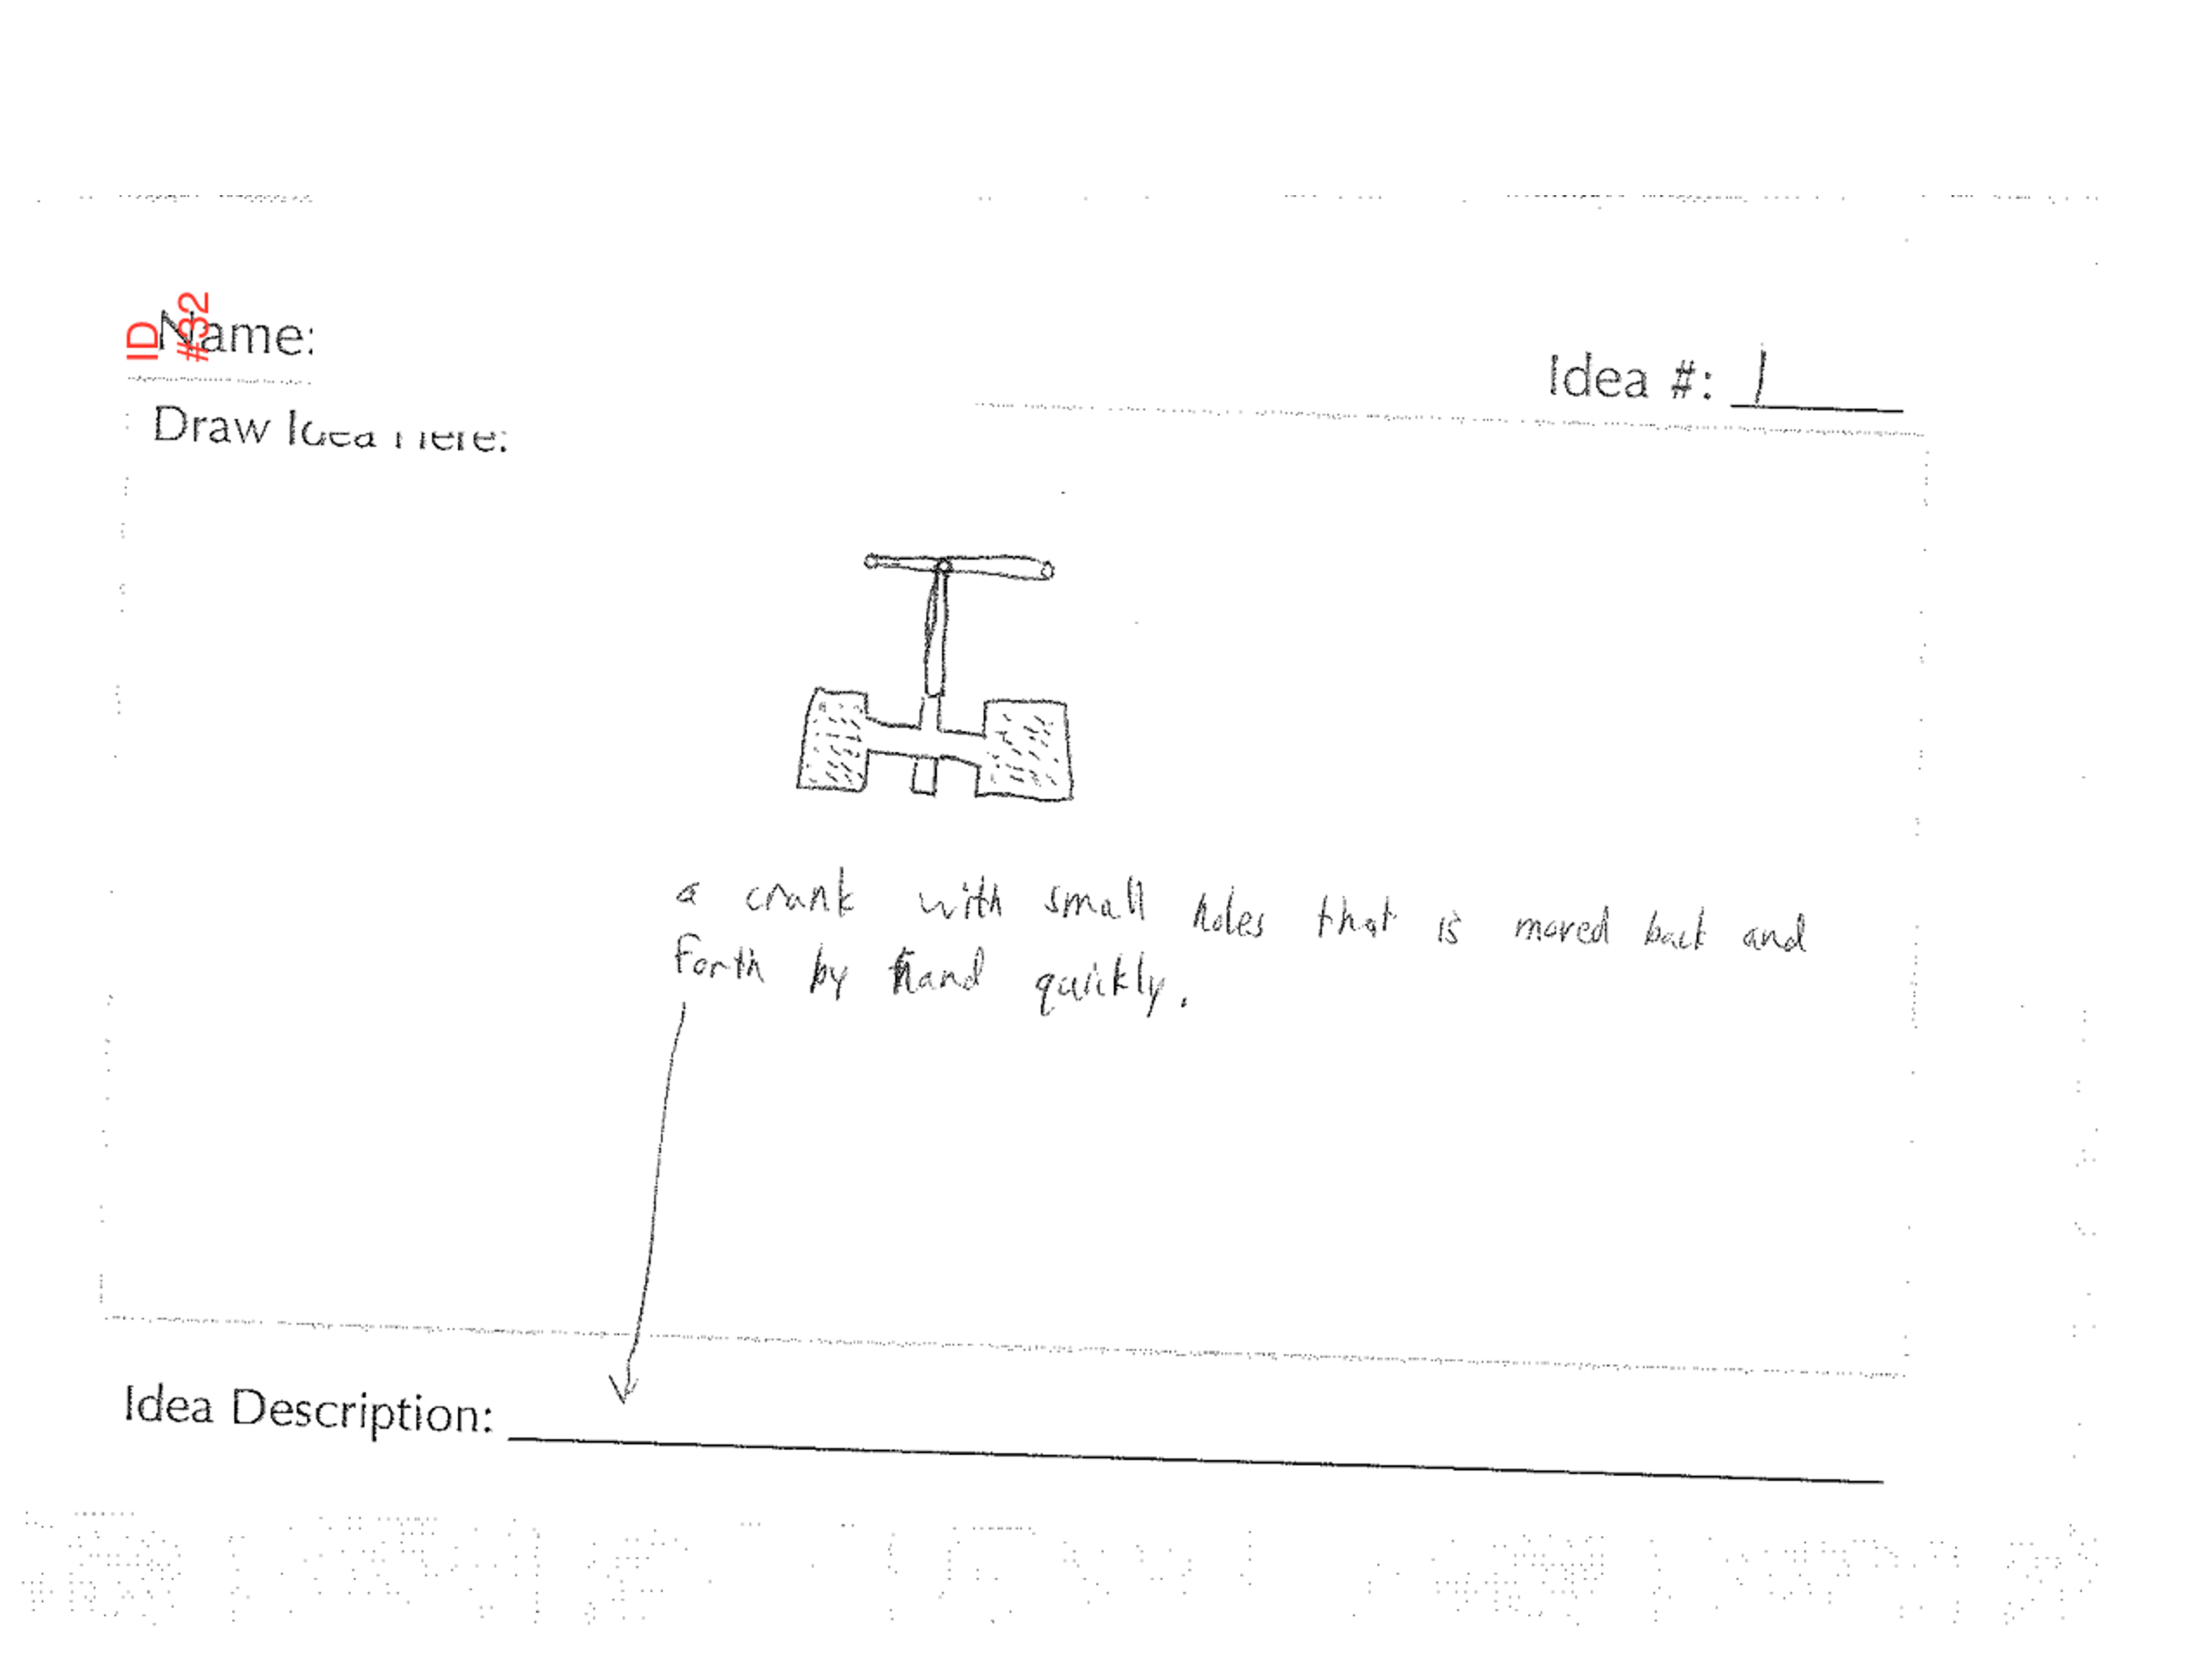 ID #32
Name:
Idea #: 1
Draw Idea Here:
a crank with small holes that is moved back and
forth by hand quickly.
Idea Description: